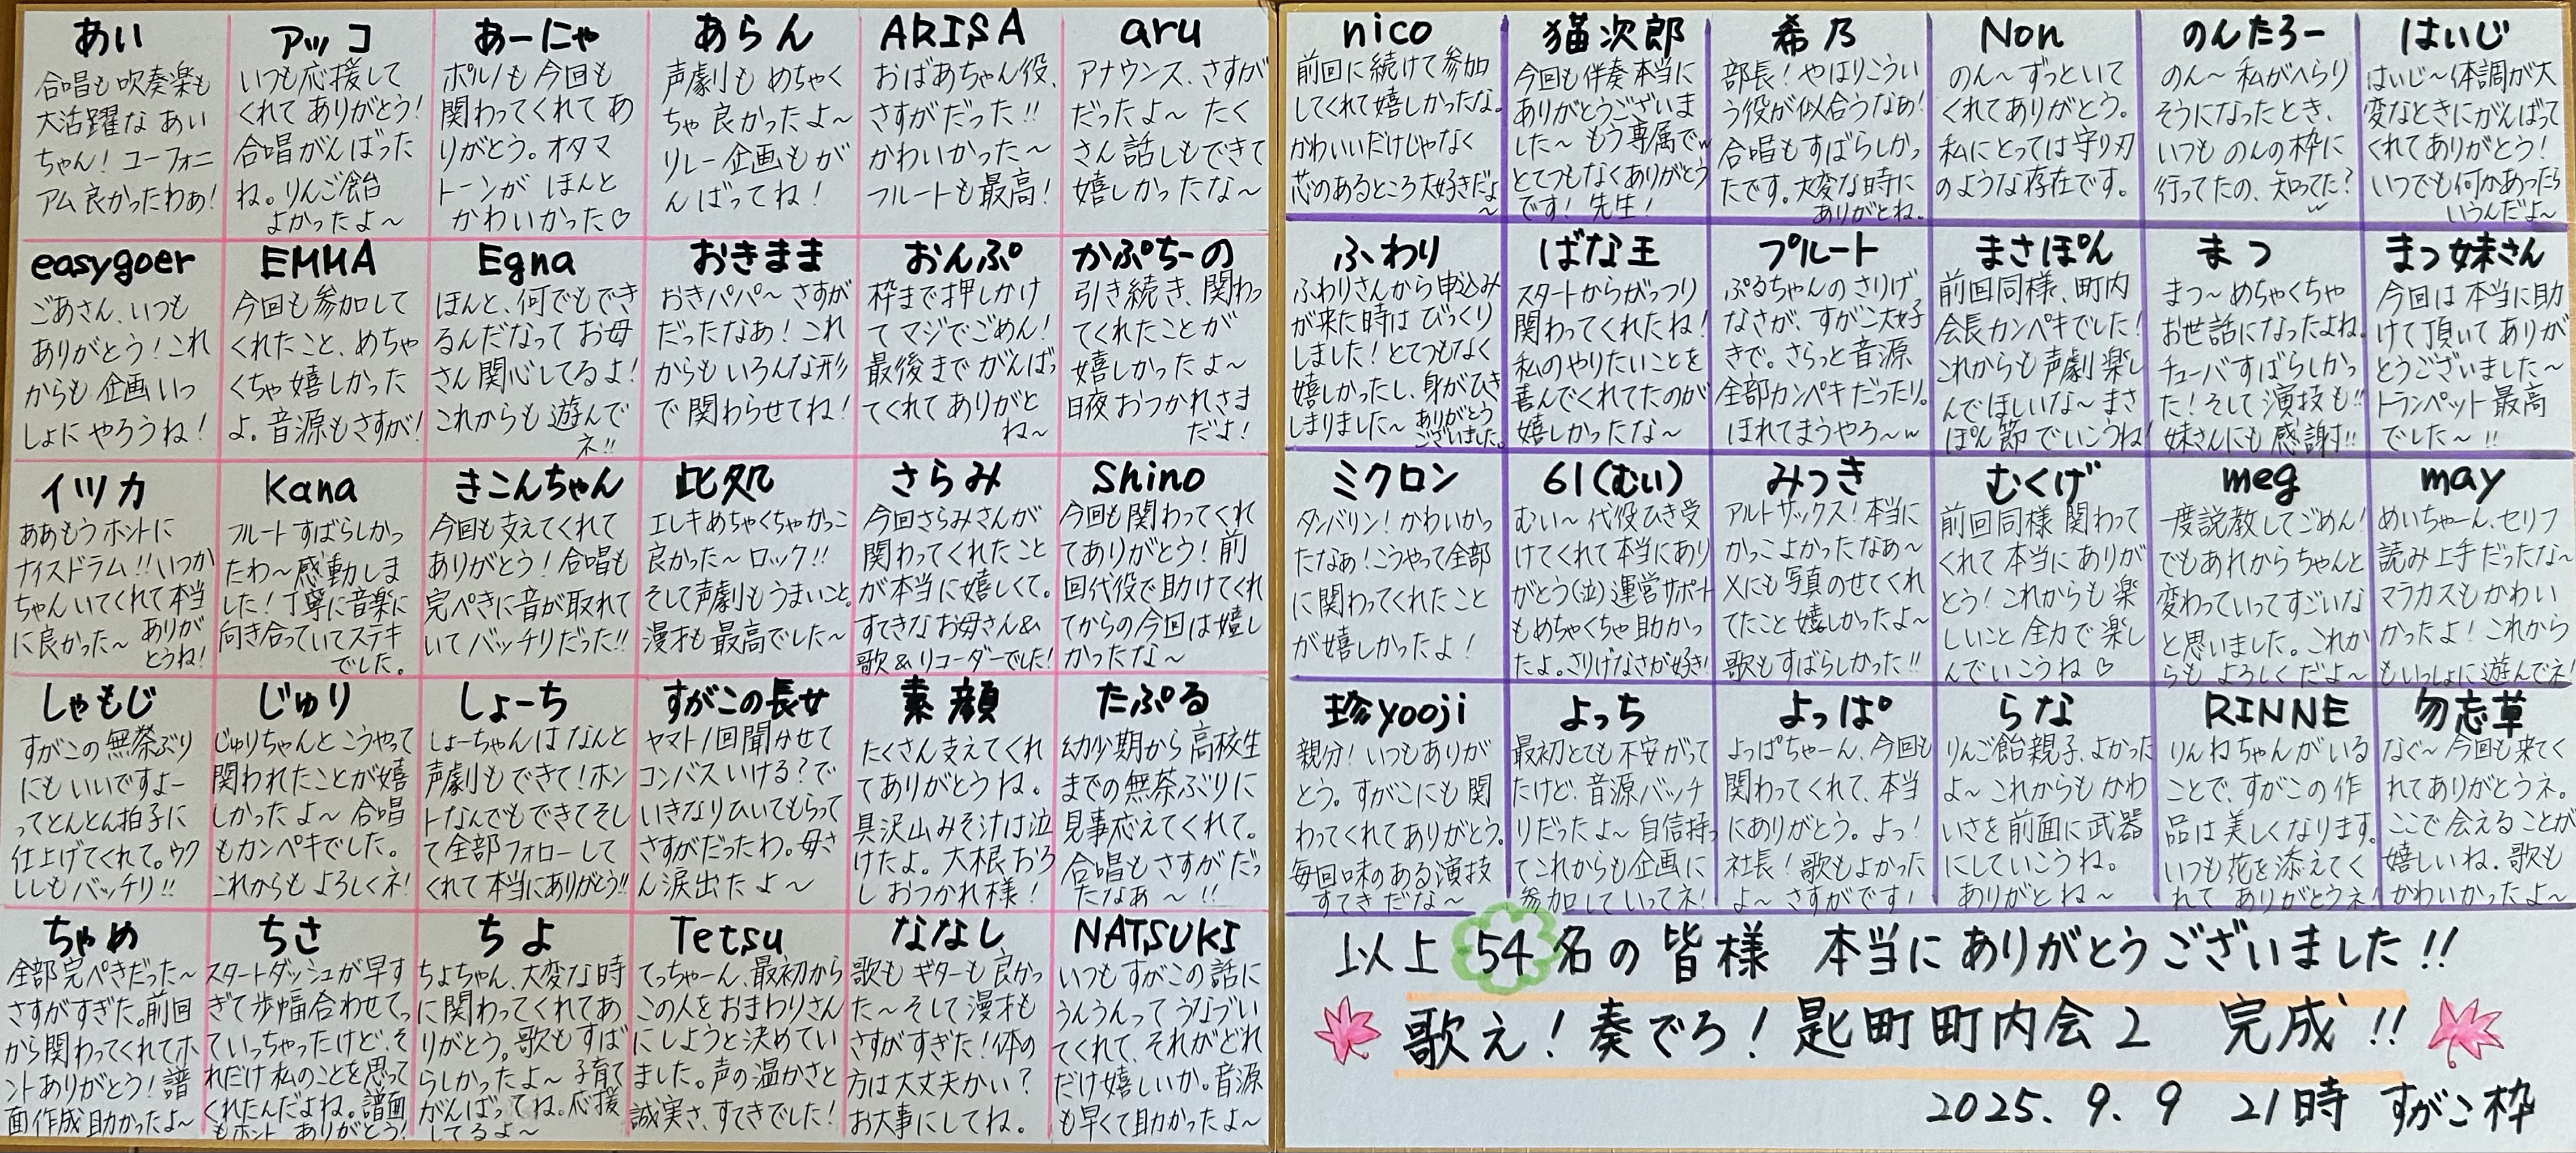 あい
合唱も吹奏楽も
大活躍な あい
ちゃん！ユーフォニ
アム良かったわぁ！
アッコ
いつも応援して
くれて ありがとう！
合唱がんばった
ね。りんご飴
よかったよ〜
あーにゃ
ポルノも今回も
関わってくれて あ
りがとう。オタマ
トーンが ほんと
かわいかった♡
あらん
声劇も めちゃく
ちゃ 良かったよ〜
リレー企画もが
んばってね！
ARISA
おばあちゃん役、
さすがだった!!
かわいかった〜
フルートも最高！
aru
アナウンス、さすが
だったよ〜 たく
さん話しもできて
嬉しかったな〜
easygoer
ごあさん、いつも
ありがとう！これ
からも 企画 いっ
しょに やろうね！
EMMA
今回も参加して
くれたこと、めちゃ
くちゃ嬉しかった
よ。音源もさすが！
Egna
ほんと、何でもでき
るんだなって お母
さん関心してるよ！
これからも 遊んで
ネ!!
おきまま
おきパパ〜 さすが
だったなぁ！これ
からも いろんな形
で 関わらせてね！
おんぷ
枠まで押しかけ
て マジでごめん！
最後まで がんばっ
てくれて ありがと
ね〜
かぷちーの
引き続き、関わっ
てくれたことが
嬉しかったよ〜
日夜 おつかれさま
だよ！
イツカ
ああもう ホントに
ナイスドラム!!いつか
ちゃん いてくれて 本当
に良かった〜 ありが
とうね！
Kana
フルート すばらしかっ
たわ〜感動しま
した！丁寧に音楽に
向き合っていてステキ
でした。
きこんちゃん
今回も支えてくれて
ありがとう！合唱も
完ぺきに音が取れて
いて バッチリだった!!
此処
エレキめちゃくちゃかっこ
良かった〜 ロック!!
そして声劇もうまいこと。
漫才も 最高でした〜
さらみ
今回さらみさんが
関わってくれたこと
が本当に嬉しくて。
すてきな お母さん&
歌&リコーダーでした！
Shino
今回も関わってくれ
てありがとう！前
回代役で助けてくれ
てからの今回は嬉し
かったな〜
しゃもじ
すがこの無茶ぶり
にも いいですよー
ってとんとん拍子に
仕上げてくれて。ウク
レレもバッチリ!!
じゅり
じゅりちゃんと こうやって
関われたことが嬉
しかったよ〜 合唱
もカンペキでした。
これからも よろしくネ！
しょーち
しょーちゃんは なんと
声劇もできて！ホン
トなんでもできてそし
て全部フォローして
くれて 本当にありがとう!!
すがこの長女
ヤマト1回聞かせて
コンバスいける？で
いきなりひいてもらって
さすがだったわ。母さ
ん涙出たよ〜
素顔
たくさん支えてくれ
てありがとうね。
具沢山みそ汁は泣
けたよ。大根おろ
し おつかれ様！
たぷる
幼少期から高校生
までの無茶ぶりに
見事応えてくれて。
合唱も さすがだっ
たなぁ〜!!
ちゃめ
全部完ぺきだった〜
さすがすぎた。前回
から関わってくれてホ
ントありがとう！譜
面作成 助かったよ〜
ちさ
スタートダッシュが早す
ぎて歩幅合わせてっ
ていっちゃったけど、そ
れだけ私のことを思って
くれたんだよね。譜面
もホント ありがとう！
ちよ
ちよちゃん、大変な時
に関わってくれてあ
りがとう。歌もすば
らしかったよ〜 子育て
がんばってね。応援
してるよ〜
Tetsu
てっちゃーん、最初から
この人をおまわりさん
にしようと決めてい
ました。声の温かさと
誠実さ、すてきでした！
ななし
歌も ギターも良かっ
た〜そして漫才も
さすがすぎた！体の
方は大丈夫かい？
お大事にしてね。
NATSUKI
いつも すがこの話に
うんうんって うなづい
てくれて、それがどれ
だけ嬉しいか。音源
も早くて助かったよ〜
nico
前回に続けて参加
してくれて嬉しかったな。
かわいいだけじゃなく
芯のあるところ大好きだよ
〜
猫次郎
今回も伴奏本当に
ありがとうございま
した〜 もう専属でw
とてつもなくありがとう
です！先生！
希乃
部長！やはりこうい
う役が似合うなぁ！
合唱もすばらしかっ
たです。大変な時に
ありがとね。
Non
のん〜 ずっといて
くれてありがとう。
私にとっては守り刀
のような存在です。
のんたろー
のん〜 私がへらり
そうになったとき、
いつも のんの枠に
行ってたの、知ってた？
w
はいじ
はいじ〜体調が大
変なときにがんばって
くれてありがとう！
いつでも何かあったら
いうんだよ〜
ふわり
ふわりさんから申込み
が来た時は びっくり
しました！とてつもなく
嬉しかったし、身がひき
しまりました〜 ありがとう
ございました。
ばな王
スタートからがっつり
関わってくれたね！
私のやりたいことを
喜んでくれてたのが
嬉しかったな〜
プルート
ぷるちゃんのさりげ
なさが、すがこ大好
きで。さらっと音源
全部カンペキだったり。
ほれてまうやろ〜w
まさぽん
前回同様、町内
会長カンペキでした！
これからも声劇楽し
んでほしいな〜 まさ
ぽん節でいこうね！
まつ
まつ〜めちゃくちゃ
お世話になったよね。
チューバすばらしかっ
た！そして演技も!!
妹さんにも 感謝!!
まつ妹さん
今回は本当に助
けて頂いて ありが
とうございました〜
トランペット 最高
でした〜!!
ミクロン
タンバリン！かわいかっ
たなぁ！こうやって全部
に関わってくれたこと
が嬉しかったよ！
61(むい)
むい〜 代役ひき受
けてくれて本当にあり
がとう(泣)運営サポート
もめちゃくちゃ助かっ
たよ。さりげなさが好き！
みつき
アルトサックス！本当に
かっこよかったなぁ〜
Xにも写真のせてくれ
てたこと嬉しかったよ〜
歌もすばらしかった!!
むくげ
前回同様 関わって
くれて本当にありが
とう！これからも楽
しいこと 全力で楽し
んでいこうね♡
meg
一度説教してごめん！
でもあれからちゃんと
変わっていってすごいな
と思いました。これか
らも よろしくだよ〜
may
めいちゃーん、セリフ
読み上手だったな〜
マラカスもかわい
かったよ！これから
もいっしょに遊んでネ！
珍yooji
親分！いつもありが
とう。すがこにも関
わってくれてありがとう。
毎回味のある演技
すてきだな〜
よっち
最初とても不安がって
たけど、音源バッチ
リだったよ〜 自信持っ
てこれからも企画に
参加していってネ！
よっぱ
よっぱちゃーん、今回も
関わってくれて、本当
にありがとう。よっ！
社長！歌もよかった
よ〜 さすがです！
らな
りんご飴親子、よかった
よ〜 これからもかわ
いさを前面に武器
にしていこうね。
ありがとね〜
RINNE
りんねちゃんがいる
ことで、すがこの作
品は美しくなります。
いつも花を添えてく
れて ありがとうネ！
勿忘草
なぐ〜 今回も来てく
れてありがとうネ。
ここで会えることが
嬉しいね。歌も
かわいかったよ〜
以上 54名の皆様 本当にありがとうございました!!
歌え！奏でろ！匙町町内会2 完成!!
2025.9.9 21時 すがこ枠